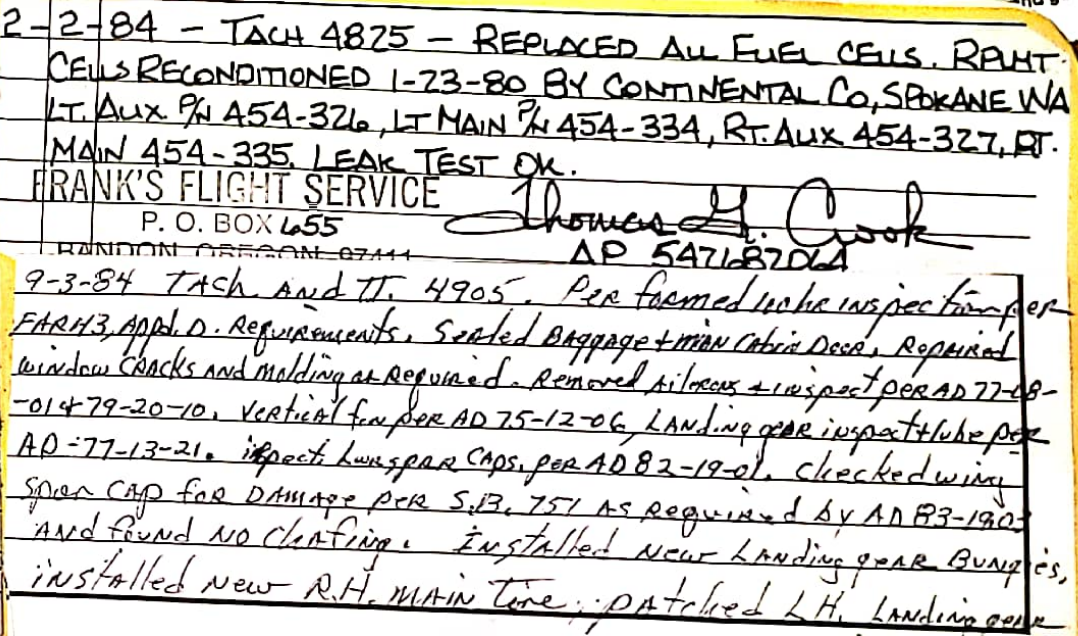 2-2-84 - TACH 4825 - REPLACED ALL FUEL CELLS. RPLMT
CELLS RECONDITIONED 1-23-80 BY CONTINENTAL CO, SPOKANE WA
LT. AUX P/N 454-326, LT MAIN P/N 454-334, RT. AUX 454-327, RT.
MAIN 454-335. LEAK TEST OK.
FRANK'S FLIGHT SERVICE
P. O. BOX 655
BANDON OREGON 97411
Thomas G. Cook
AP 547687064
9-3-84 TACH AND TT. 4905. Performed 100hr inspection per
FAR43, Appd. D. Requirements. Sealed Baggage + main Cabin Door, Repaired
window CRACKS AND Molding as Required. Removed Ailerons + inspect per AD 77-08-
-01 + 79-20-10. Vertical fin per AD 75-12-06, LANding gear inspect + lube per
AD-77-13-21. inspect Lwr spar CAPS, per AD 82-19-01. Checked wing
spar CAP for DAMAge per S.B. 751 AS Required by AD 83-19-03
AND found NO Chafing. Installed New LANding geAR Bungies,
iNSTAlled New R.H. MAIN Tire, pAtched LH. LANding geAR